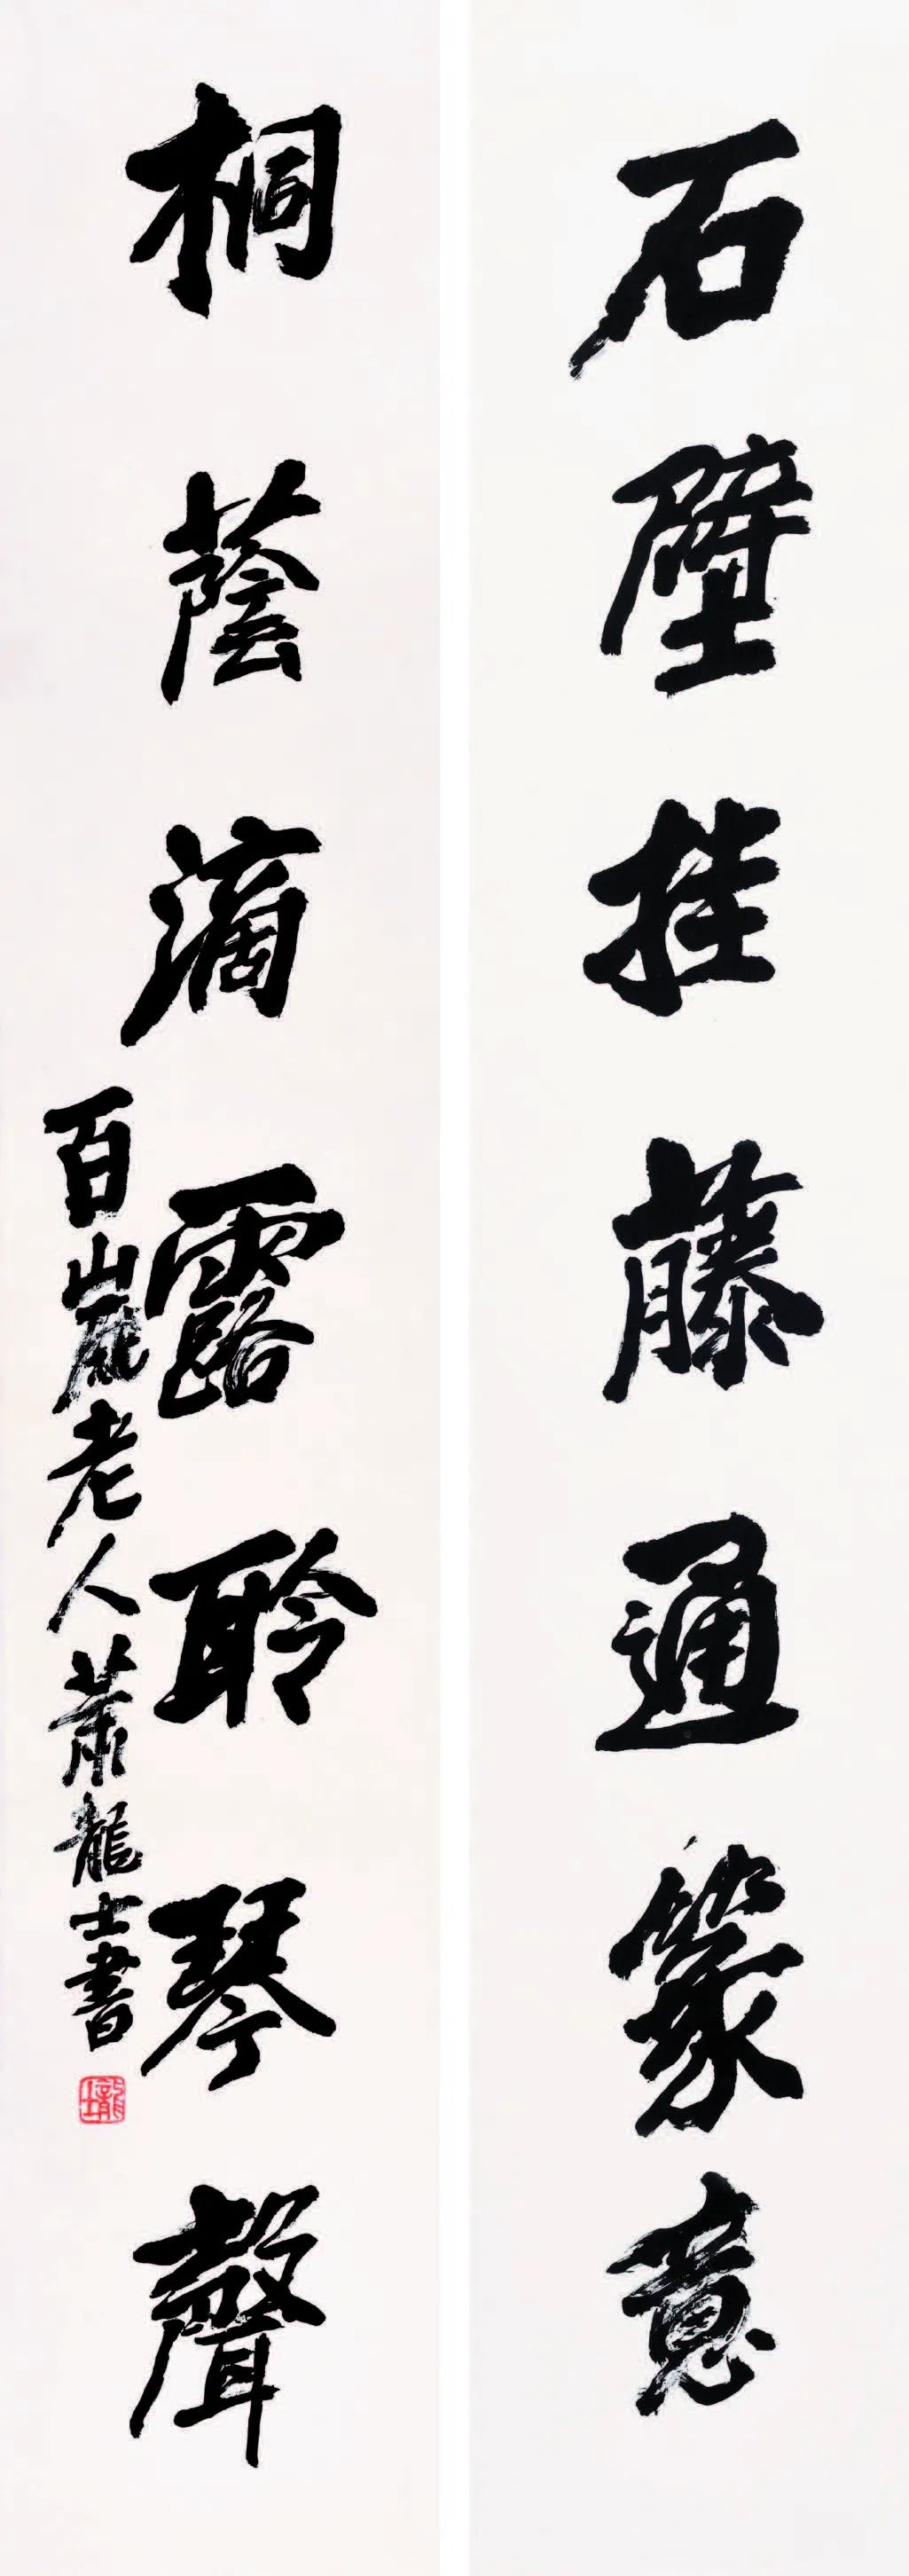 石壁挂藤通篆意
桐蔭滴露聆琴聲
百嵗老人蕭龍士書
龍士